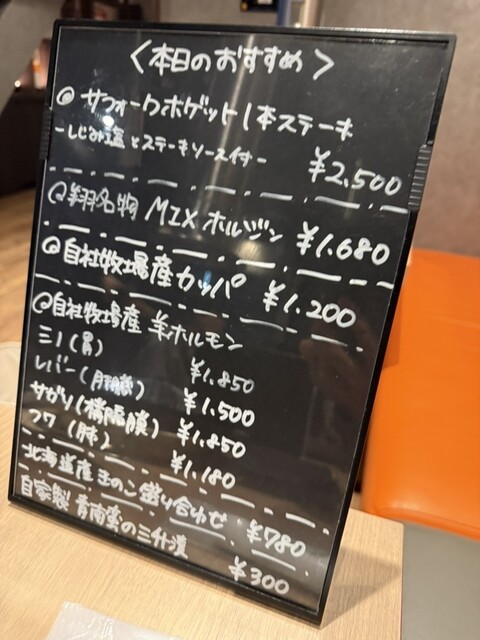 〈本日のおすすめ〉
◎サフォークホゲット1本ステーキ
-しじみ塩とステーキソース付- ¥2.500
◎翔名物 MIXホルジン ¥1.680
◎自社牧場産カッパ ¥1.200
◎自社牧場産 羊ホルモン
ミノ(胃) ¥1.850
レバー(肝臓) ¥1.500
サガリ(横隔膜) ¥1.850
フワ(肺) ¥1.180
北海道産きのこ盛り合わせ ¥780
自家製 青南蛮の三升漬 ¥300